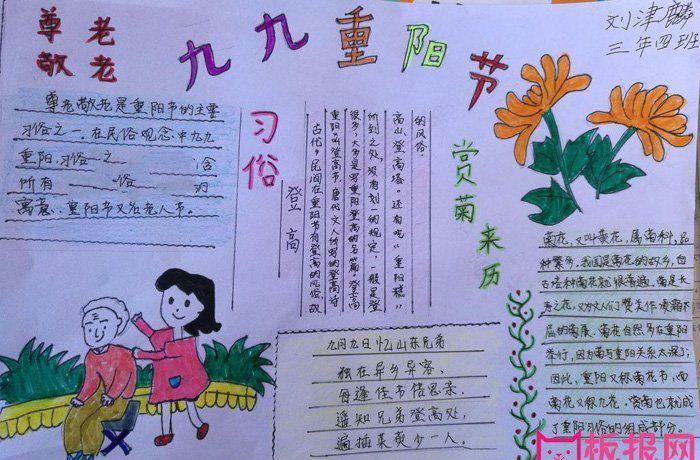 尊老
敬老
九九重阳节
刘津麟
三年四班
尊老敬老是重阳节的主要
习俗之一,在民俗观念中九九
重阳,习俗之 含
所有 俗 的
寓意,重阳节又名老人节。
习俗
登高
古代,民间在重阳节有登高的风俗,故
重阳叫登高节。唐代文人所写的登高诗
很多,大多是写重阳登高的名篇。登高
所到之处,没有划一的规定,一般是登
高山、登高塔。还有吃“重阳糕”
的风俗。
赏菊来历
九月九日忆山东兄弟
独在异乡异客,
每逢佳节倍思亲,
遥知兄弟登高处,
遍插茱萸少一人。
菊花,又叫黄花,属菊科,品
种繁多。我国是菊花的故乡,自
古培种菊花很普遍。菊是长
寿之花,又为文人们赞美作
菊花自然多在重阳
举行,因为菊与重阳关系太深了,
因此,重阳又称菊花节,而
菊花又称九花。赏菊也就成
了重阳习俗的组成部分。
板报网